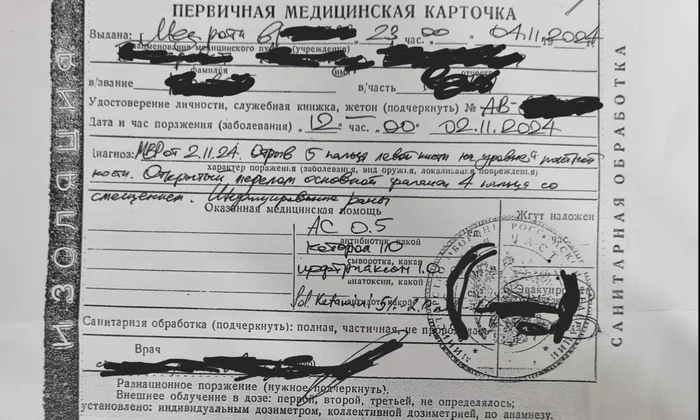 ПЕРВИЧНАЯ МЕДИЦИНСКАЯ КАРТОЧКА
Выдана: Медрота 23 час. 00 04.11.2024
наименование медицинского (учреждения)
фамилия (имя
в/звание в/часть
Удостоверение личности, служебная книжка, жетон (подчеркнуть) № АВ-
Дата и час поражения (заболевания) „12 час. „00 02.11.2024
Диагноз: МВР от 2.11.24. Отрыв 5 пальца левой кисти на уровне пястной
характер поражения (заболевания, вид оружия, локализация повреждения)
кости. Открытый перелом основной фаланги 4 пальца со
смещением. Инфицирование раны
Оказанная медицинская помощь
Жгут наложен
АС 0.5
антибиотик, какой
кеторол 1.0
сыворотка, какая
цефтриаксон 1.0
анатоксин, какой
Эвакуир
Санитарная обработка (подчеркнуть): полная, частичная, не
Врач
Радиационное поражение (нужное подчеркнуть).
Внешнее облучение в дозе: первой, второй, третьей, не определялось;
установлено: индивидуальным дозиметром, коллективной дозиметрией, по анамнезу.
ИЗОЛАЦИЯ
САНИТАРНАЯ ОБРАБОТКА